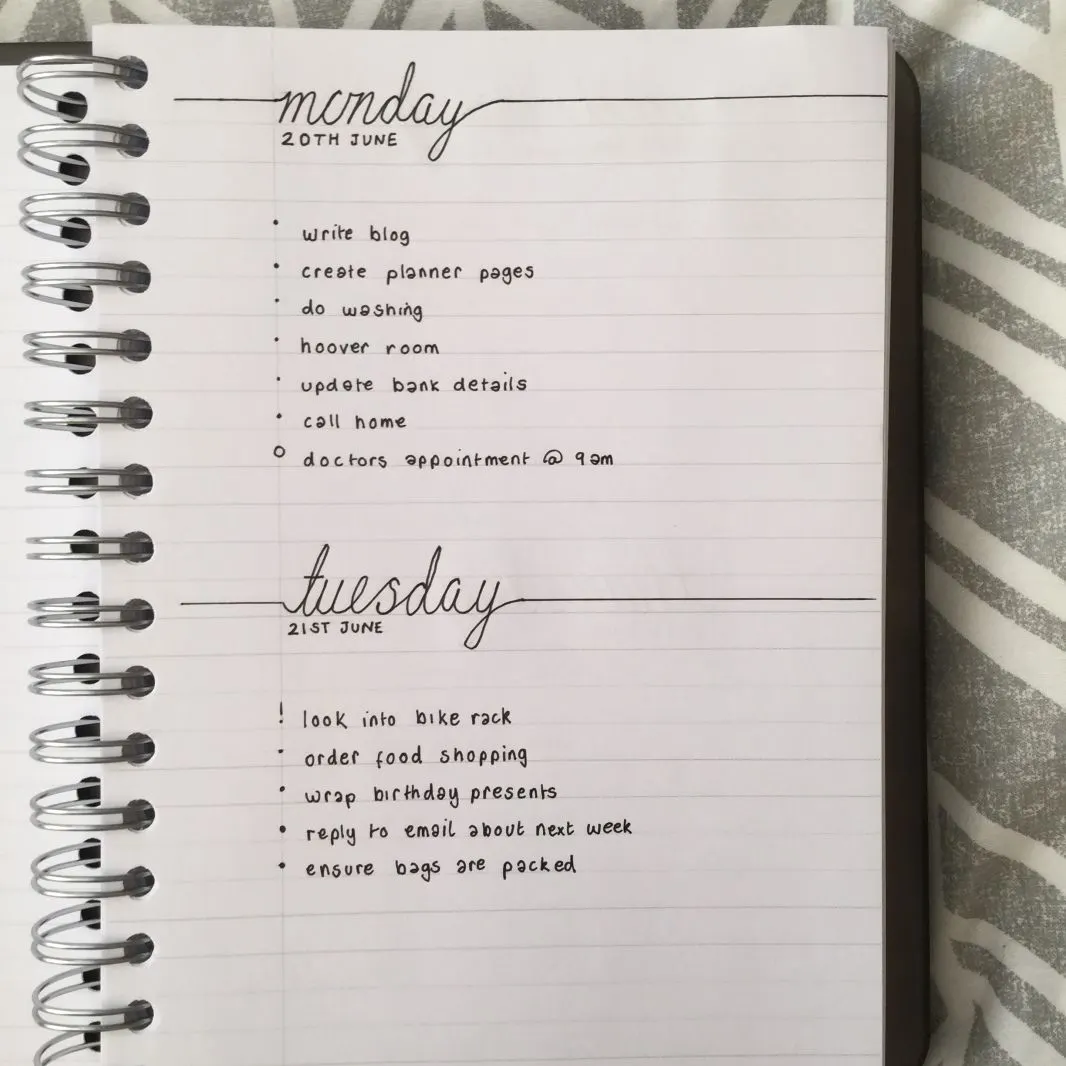 monday
20TH JUNE
· write blog
· create planner pages
· do washing
· hoover room
· update bank details
· call home
o doctors appointment @ 9am
tuesday
21ST JUNE
! look into bike rack
· order food shopping
· wrap birthday presents
· reply to email about next week
· ensure bags are packed